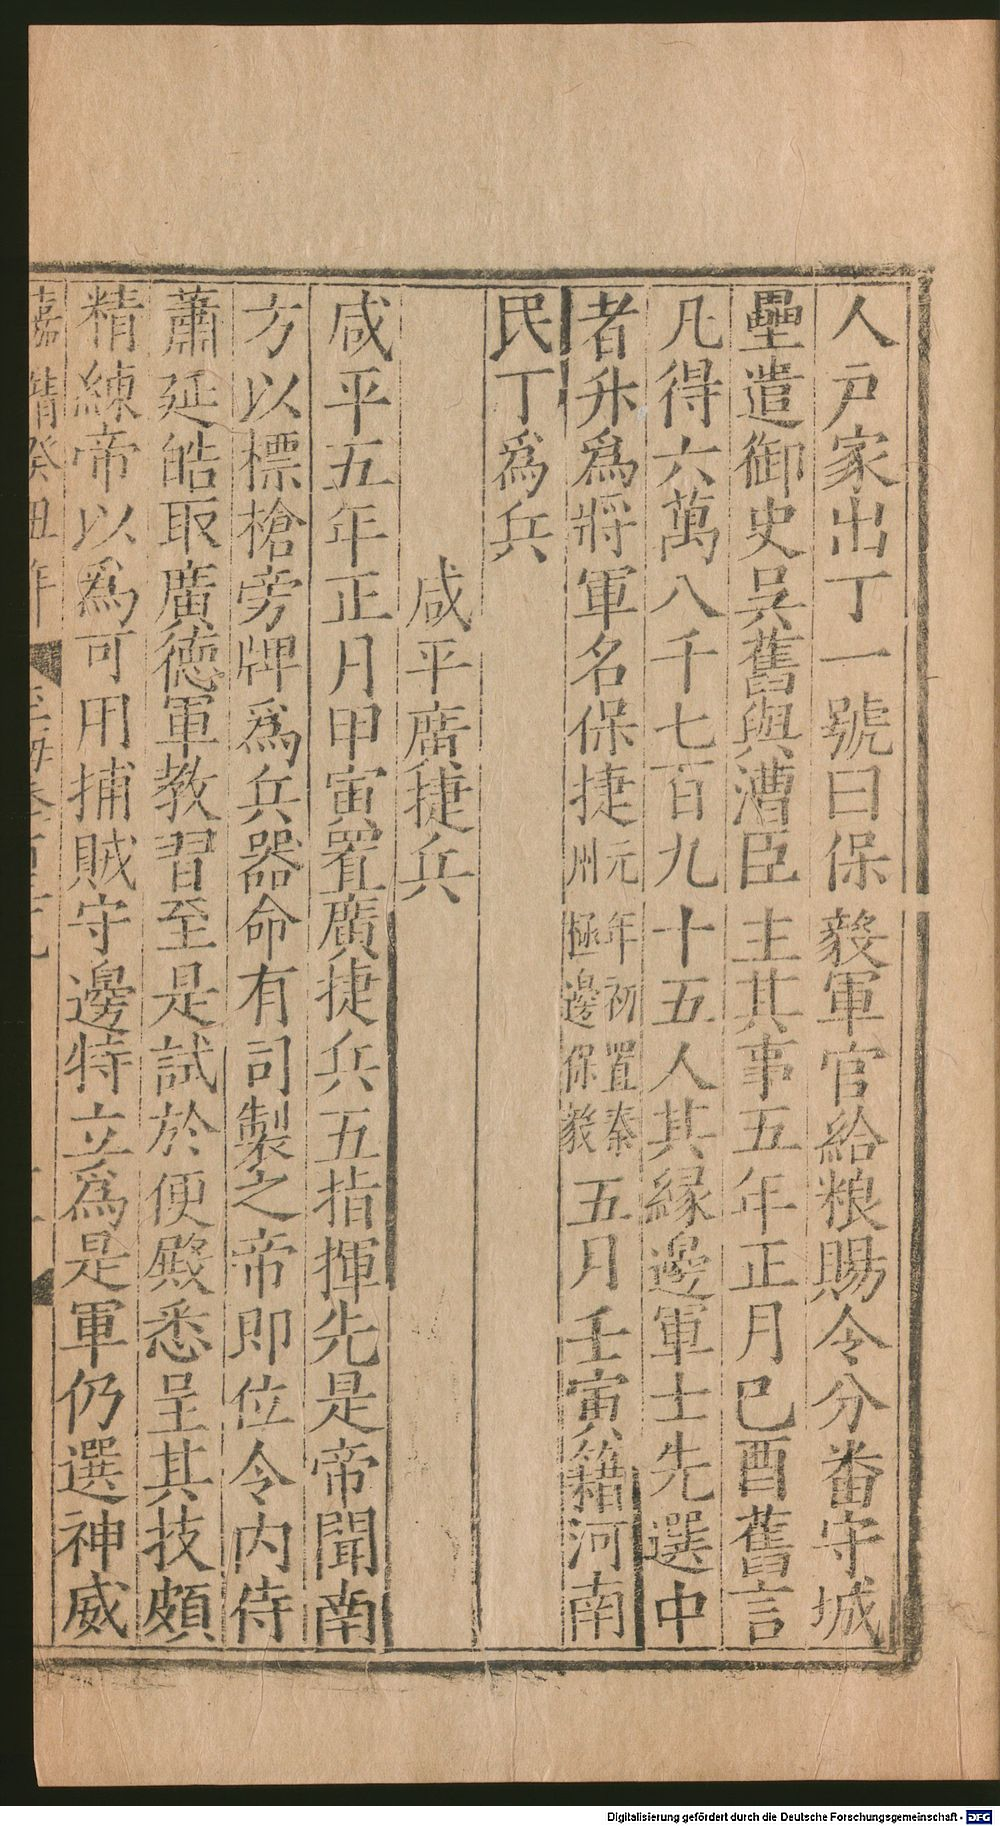 人戸家出丁一號曰保毅軍官給粮賜令分番守城
壘遣御史吳舊與漕臣主其事五年正月己酉舊言
凡得六萬八千七百九十五人其緣邊軍士先選中
者升爲將軍名保捷元年初置秦州極邊保毅五月壬寅籍河南
民丁爲兵
咸平廣捷兵
咸平五年正月甲寅置廣捷兵五指揮先是帝聞南
方以標槍旁牌爲兵器命有司製之帝即位令内侍
蕭延皓取廣德軍教習至是試於便殿悉呈其技頗
精練帝以爲可用捕賊守邊特立爲是軍仍選神威
嘉靖癸丑年
Digitalisierung gefördert durch die Deutsche Forschungsgemeinschaft - DFG